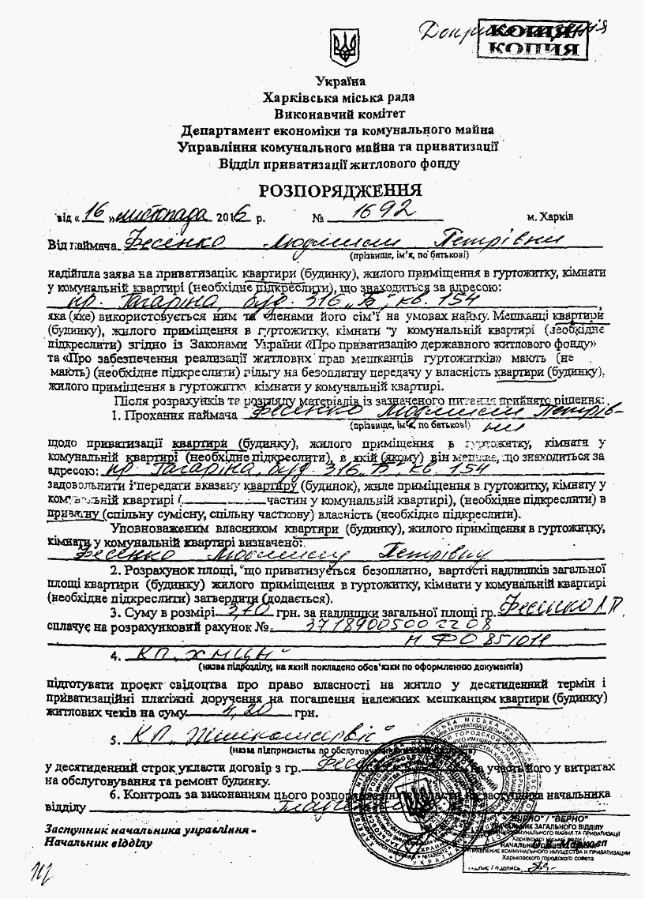 КОПІЯ
КОПИЯ
Україна
Харківська міська рада
Виконавчий комітет
Департамент економіки та комунального майна
Управління комунального майна та приватизації
Відділ приватязації житлового фонду
РОЗПОРЯДЖЕННЯ
від « 16 » листопада 2016 р. № 1692 м. Харків
Від наймача Фесенко Людмили Петрівни
(прізвище, ім'я, по батькові)
надійшла заява на приватизацію квартири (будинку), жилого приміщення в гуртожитку, кімнати
у комунальній квартирі (необхідне підкреслити), що знаходиться за адресою:
пр. Гагаріна, буд. 316 „Б" кв. 154
яка (яке) використовується ним та членами його сім'ї на умовах найму. Мешканці квартири
(будинку), жилого приміщення в гуртожитку, кімнати у комунальній квартирі (необхідне
підкреслити) згідно із Законами України «Про приватизацію державного житлового фонду»
та «Про забезпечення реалізації житлових прав мешканців гуртожитків» мають (не
мають) (необхідне підкреслити) пільгу на безоплатну передачу у власність квартири (будинку),
жилого приміщення в гуртожитку, кімнати у комунальній квартирі.
Після розрахунків та розгляду матеріалів із зазначеного питання прийнято рішення:
1. Прохання наймача Фесенко Людмили Петрів-
(прізвище, ім'я, по батькові) ни
щодо приватизації квартири (будинку), жилого приміщення в гуртожитку, кімнати у
комунальній квартирі (необхідне підкреслити), в якій (якому) він мешкає, що знаходиться за
адресою: пр. Гагаріна, буд. 316 „Б" кв. 154
задовольнити і передати вказану квартиру (будинок), жиле приміщення в гуртожитку, кімнату у
комунальній квартирі ( частин у комунальній квартирі), (необхідне підкреслити) в
приватну (спільну сумісну, спільну часткову) власність (необхідне підкреслити).
Уповноваженим власником квартири (будинку), жилого приміщення в гуртожитку,
кімнати у комунальній квартирі визначено:
Фесенко Людмилу Петрівну
2. Розрахунок площі, що приватизується безоплатно, вартості надлишків загальної
площі квартири (будинку) жилого приміщення в гуртожитку, кімнати у комунальній квартирі
(необхідне підкреслити) затвердити (додається).
3. Суму в розмірі грн. за надлишки загальної площі гр. Фесенко Л.П.
сплачує на розрахунковий рахунок № 37189005002208
МФО 851011
4. КП „ХМЦН"
(назва підрозділу, на який покладено обов'язки по оформленню документів)
підготувати проект свідоцтва про право власності на житло у десятиденний термін і
приватизаційні платіжні доручення на погашення належних мешканцям квартири (будинку)
житлових чеків на суму грн.
5. КП „Жилкомсервіс"
(назва підприємства по обслуговуванню
у десятиденний строк укласти договір з гр. на участь його у витратах
на обслуговування та ремонт будинку.
6. Контроль за виконанням цього розпорядження покласти на заступника начальника
відділу
Заступник начальника управління -
Начальник відділу
"ВІРНО" / "ВЕРНО"
НАЧАЛЬНИК ЗАГАЛЬНОГО ВІДДІЛУ
Харьковского городского совета